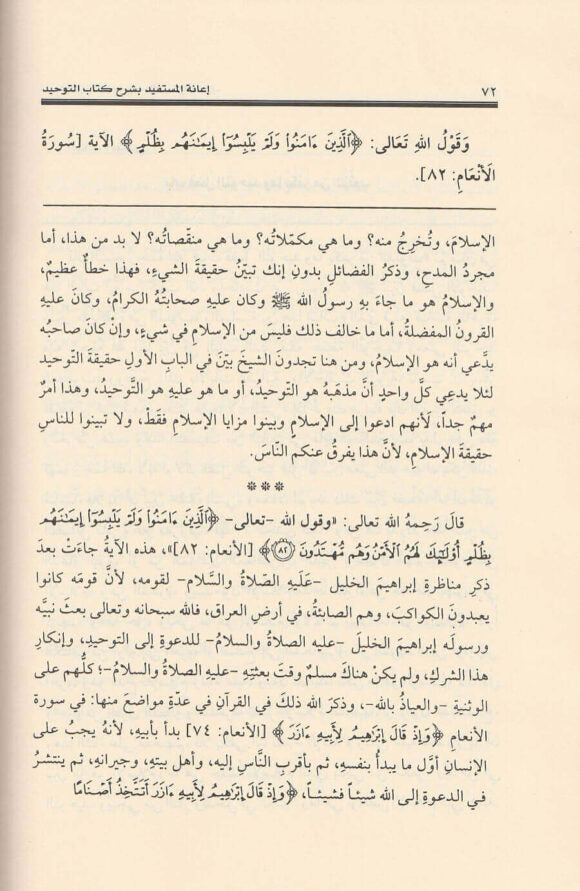 ٧٢
إعانة المستفيد بشرح كتاب التوحيد
وَقَوْلُ اللهِ تَعَالى: ﴿ٱلَّذِينَ ءَامَنُوا۟ وَلَمْ يَلْبِسُوٓا۟ إِيمَـٰنَهُم بِظُلْمٍ﴾ الآية [سُورَةُ
الأَنْعَامِ: ٨٢].
الإسلامَ، وتُخرِجُ منه؟ وما هي مكمّلاتُه؟ وما هي منقّصاتُه؟ لا بد من هذا، أما
مجردُ المدحِ، وذكرُ الفضائلِ بدونِ إنك تبيّنُ حقيقةَ الشيءِ، فهذا خطأٌ عظيمٌ،
والإسلامُ هو ما جاءَ بهِ رسولُ الله ﷺ وكان عليهِ صحابتُهُ الكرامُ، وكانَ عليهِ
القرونُ المفضلةُ، أما ما خالف ذلك فليسَ من الإسلامِ في شيءٍ، وإنْ كانَ صاحبُه
يدَّعي أنه هو الإسلامُ، ومن هنا تجدونَ الشيخَ بيّنَ في البابِ الأولِ حقيقةَ التّوحيد
لئلا يدعِي كلّ واحدٍ أنَّ مذهَبهُ هو التّوحيدُ، أو ما هو عليهِ هو التَّوحيدُ، وهذا أمرٌ
مهمٌ جداً، لَأنهم ادعوا إلى الإسلامِ وبينوا مزايا الإسلامِ فقَطْ، ولا تبينوا للناسِ
حقيقةَ الإسلامِ، لأنَّ هذا يفرقُ عنكم النّاسَ.
***
قالَ رَحِمهُ الله تعالى: «وقول الله -تعالى- ﴿ٱلَّذِينَ ءَامَنُوا۟ وَلَمْ يَلْبِسُوٓا۟ إِيمَـٰنَهُم
بِظُلْمٍ أُو۟لَـٰٓئِكَ لَهُمُ ٱلْأَمْنُ وَهُم مُّهْتَدُونَ ٨٢﴾ [الأنعام: ٨٢]»، هذه الآيةُ جاءَتْ بعدَ
ذكرِ مناظرةِ إبراهيمَ الخليل -عَلَيهِ الصّلاةُ والسَّلام- لقومه، لأنَّ قومَه كانوا
يعبدونَ الكواكبَ، وهم الصابئةُ، في أرضِ العراق، فالله سبحانه وتعالى بعثَ نبيَّه
ورسولَه إبراهيمَ الخليلَ -عليه الصلاةُ والسلامُ- للدعوةِ إلى التوحيدِ، وإنكارِ
هذا الشركِ، ولم يكنْ هناكَ مسلمٌ وقتَ بعثتِهِ -عليهِ الصلاةُ والسلامُ-؛ كلُّهم على
الوثنيةِ -والعياذُ بالله-، وذكرَ الله ذلكَ في القرآنِ في عدّةِ مواضعَ منها: في سورة
الأنعامِ ﴿وَإِذْ قَالَ إِبْرَٰهِيمُ لِأَبِيهِ ءَازَرَ﴾ [الأنعام: ٧٤] بدأ بأبيهِ، لأنهُ يجبُ على
الإنسانِ أوَّل ما يبدأُ بنفسهِ، ثم بأقربِ النَّاسِ إليه، وأهل بيتِهِ، وجيرانِهِ، ثم ينتشرُ
في الدعوةِ إلى الله شيئاً فشيئاً، ﴿وَإِذْ قَالَ إِبْرَٰهِيمُ لِأَبِيهِ ءَازَرَ أَتَتَّخِذُ أَصْنَامًا